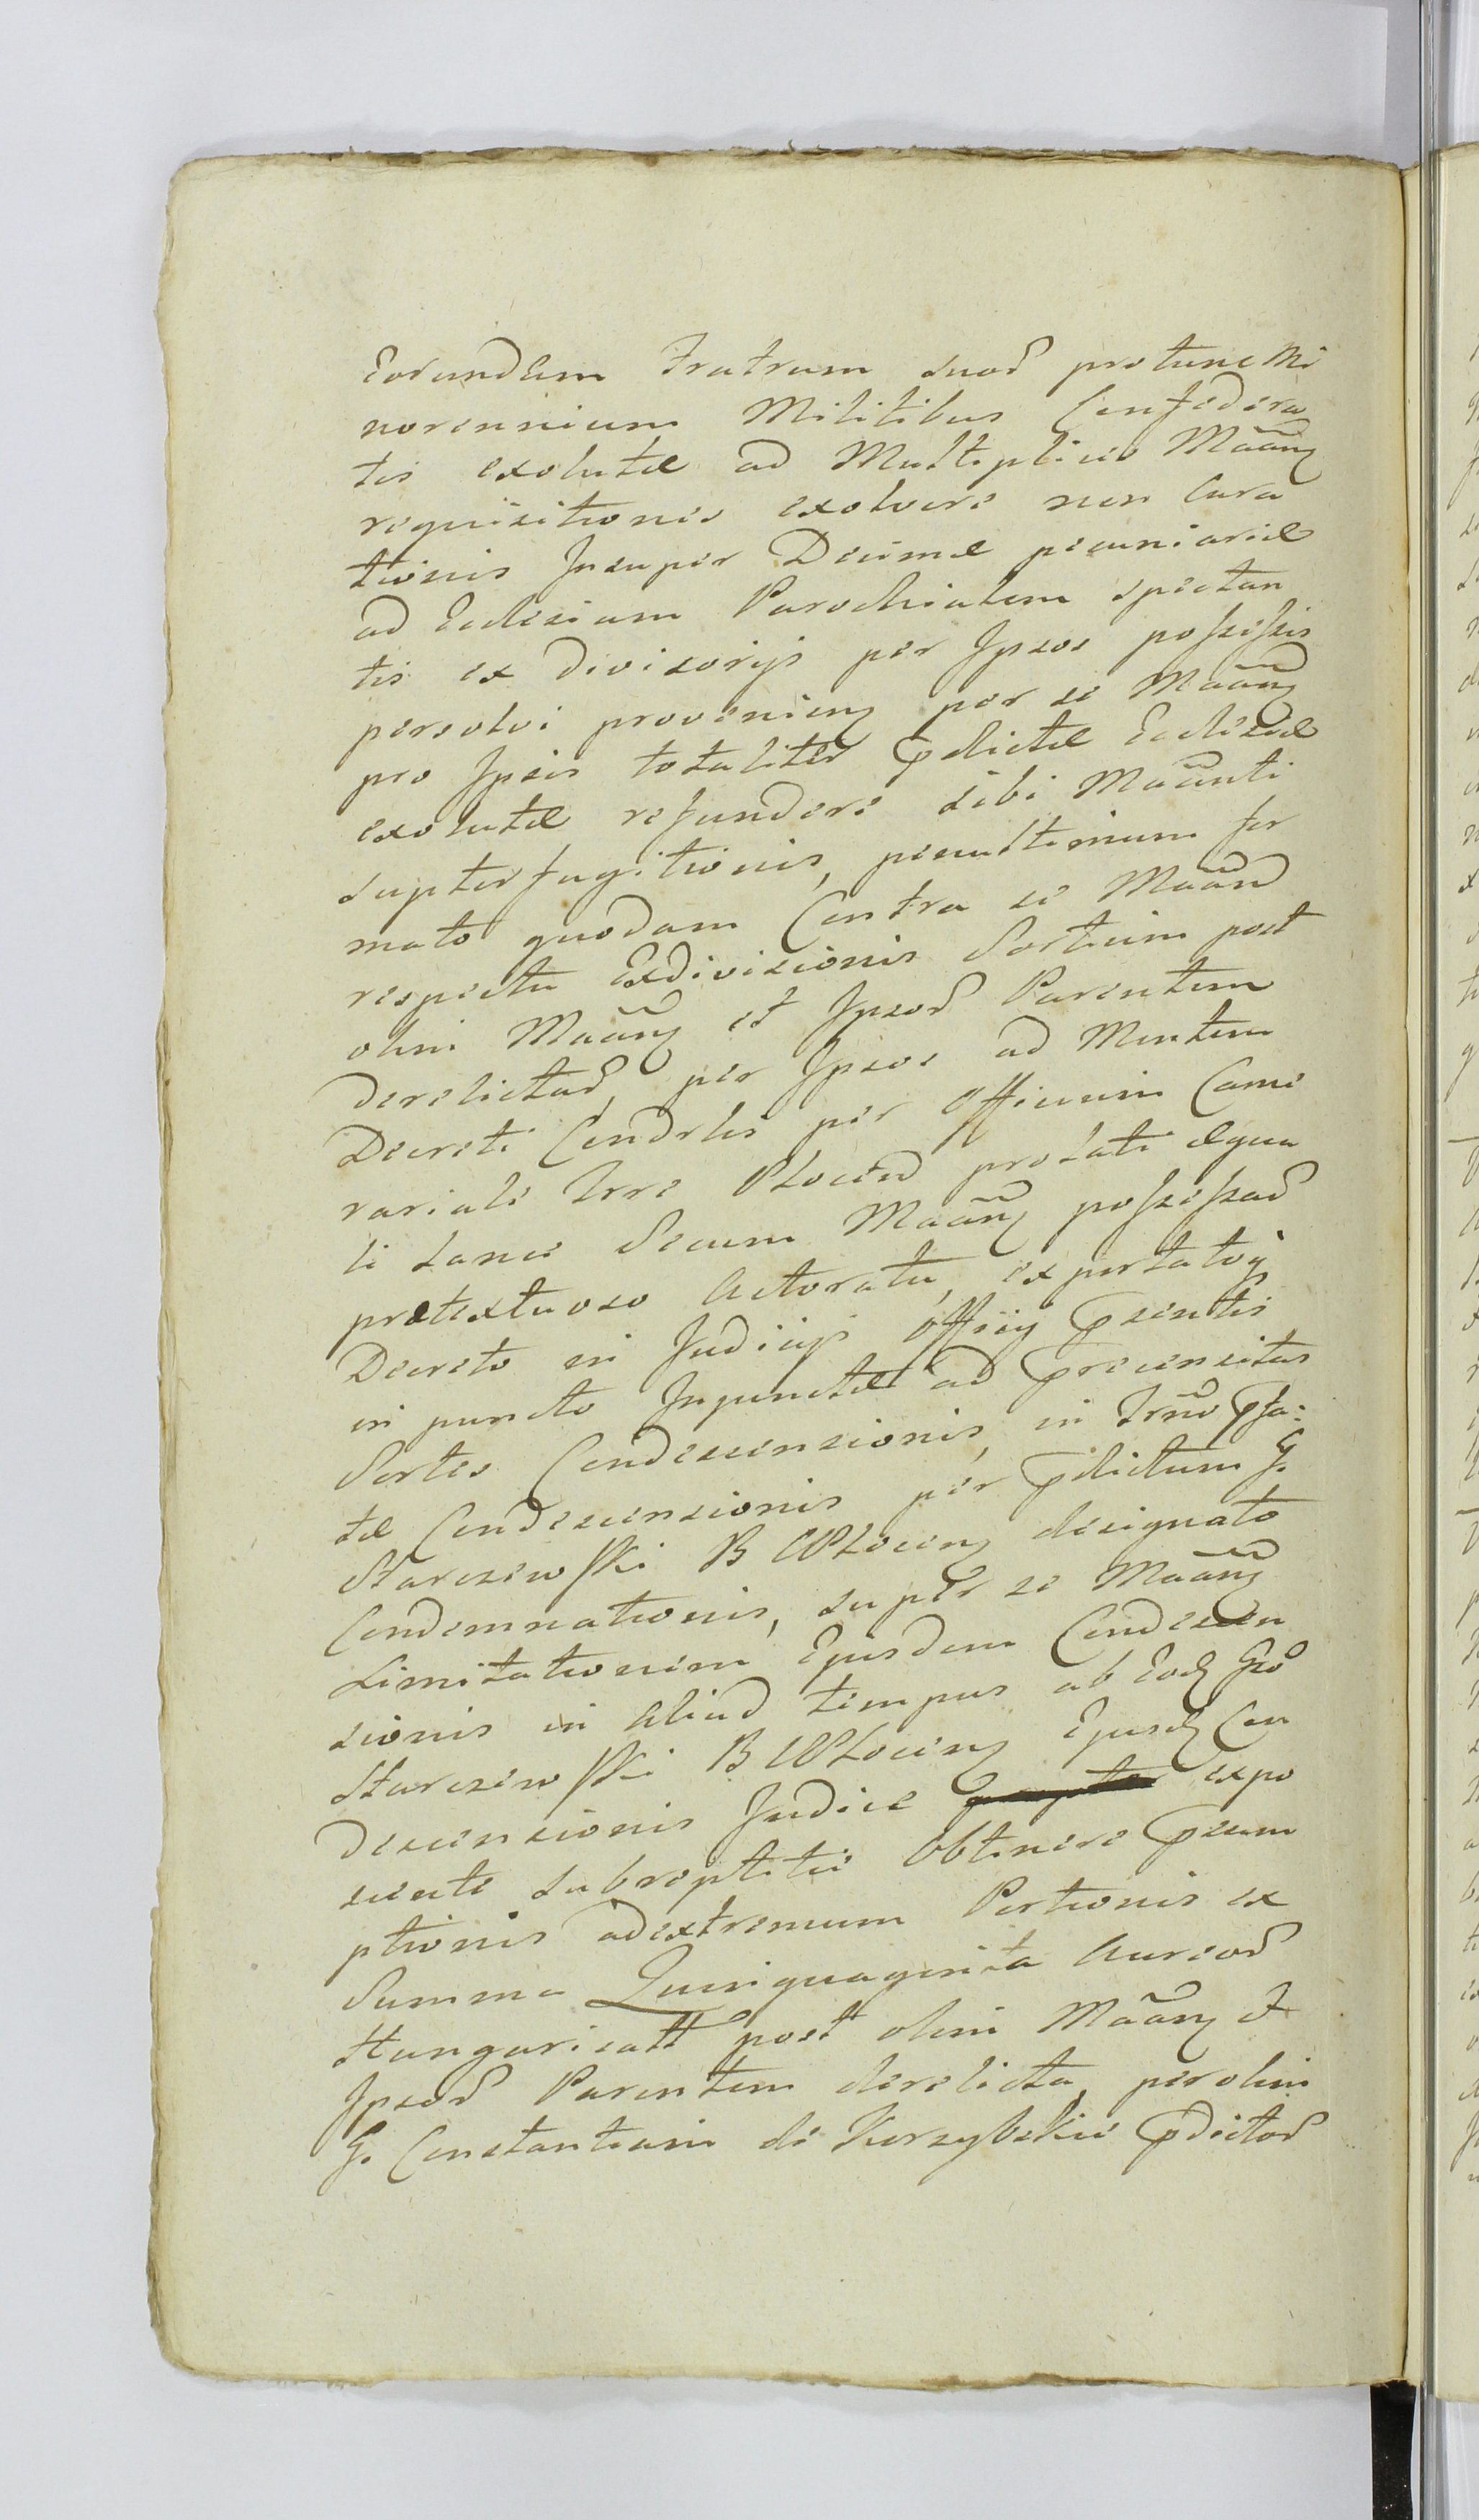 Eorundem Fratrum suoꝝ protunc Mi
norennium Militibus Confedera
tis exolutæ ad Multiplices Māang
requisitiones exolvere non Cura
tionis Insuper Decimæ pecuniariæ
ad Ecclesiam Parochialem spectan
tis ex divisorijs per Ipsos possessis
persolvi provenieng per se Māang
pro Ipsis totaliter pdictæ Ecclesiæ
exolutæ refundere sibi Māanti
supterfugitionis, penultimum for
mato quodam Contra se Māand
respectu Exdivisionis Sortium post
olim Māang et Ipsoꝝ Parentem
derelictaꝝ per Ipsos ad Mentem
Decreti Condrlis per Officium Came
rariale Trre Plocen prolati æqua
li lance Secum Māang possessaꝝ
prætextuoso Actoratu, exportatoq
Decreto in Judicijs Officij psentis
in puncto Injunctæ ad precensitas
Sortes Condescensionis, in Trno pfa:
tæ Condescensionis per pdictum G.
Starczewski B CPloceng designato
Condemnationis, super se Māang
Limitationem Ejusdem Condescen
sionis in Aliud tempus ab Eodg Gso
Starczewski B CPloceng Ejusdg Con
descensionis Judice expo
scente subreptitie Obtinere psum
ptionis adextremum Portionis ex
Summa Quinquaginta Aureoꝝ
Hungaricall post olim Māang et
Ipsoꝝ Parentem derelicta, perolim
G. Constantiam de Korzybskie pdictoꝝ